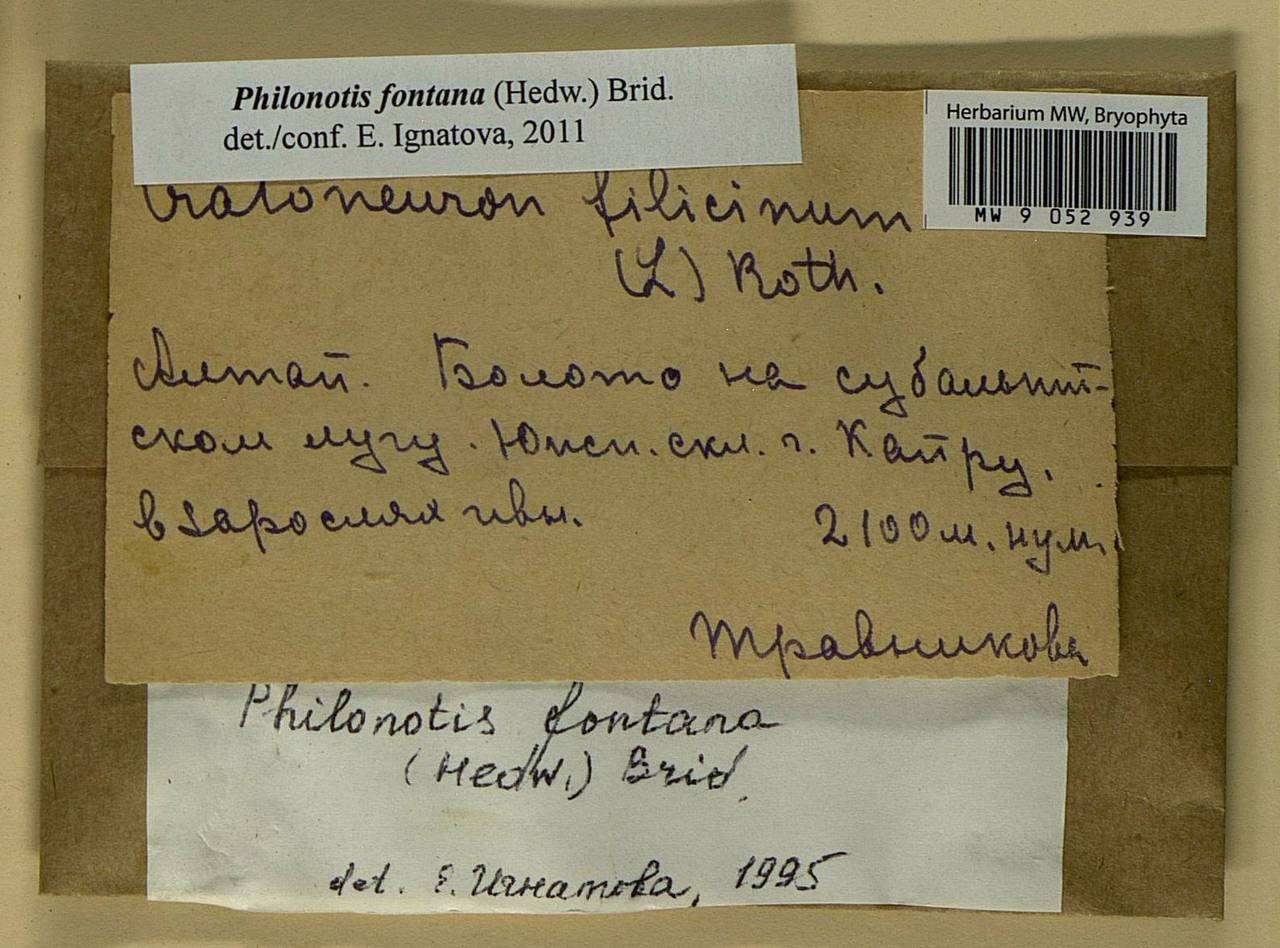 Philonotis fontana (Hedw.) Brid.
det./conf. E. Ignatova, 2011
Herbarium MW, Bryophyta
MW 9 052 939
Cratoneuron filicinum
(L) Roth.
Алтай. Болото на субальпий-
ском лугу. Южн. скл. г. Кайру.
в зарослях ивы.
2100 м. нум.
Травникова
Philonotis fontana
(Hedw.) Brid.
det. Е. Игнатова, 1995